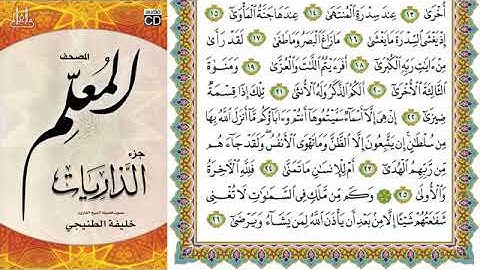 audio
CD
المصحف
المعلم
جزء
الذاريات
بصوت فضيلة الشيخ القارئ
خليفة الطنيجي
أُخْرَىٰ ١٣ عِندَ سِدْرَةِ ٱلْمُنتَهَىٰ ١٤ عِندَهَا جَنَّةُ ٱلْمَأْوَىٰ ١٥
إِذْ يَغْشَى ٱلسِّدْرَةَ مَا يَغْشَىٰ ١٦ مَا زَاغَ ٱلْبَصَرُ وَمَا طَغَىٰ ١٧ لَقَدْ رَأَىٰ
مِنْ ءَايَٰتِ رَبِّهِ ٱلْكُبْرَىٰٓ ١٨ أَفَرَءَيْتُمُ ٱللَّٰتَ وَٱلْعُزَّىٰ ١٩ وَمَنَوٰةَ
ٱلثَّالِثَةَ ٱلْأُخْرَىٰٓ ٢٠ أَلَكُمُ ٱلذَّكَرُ وَلَهُ ٱلْأُنثَىٰ ٢١ تِلْكَ إِذًا قِسْمَةٌ
ضِيزَىٰٓ ٢٢ إِنْ هِىَ إِلَّآ أَسْمَآءٌ سَمَّيْتُمُوهَآ أَنتُمْ وَءَابَآؤُكُم مَّآ أَنزَلَ ٱللَّهُ بِهَا
مِن سُلْطَٰنٍ إِن يَتَّبِعُونَ إِلَّا ٱلظَّنَّ وَمَا تَهْوَى ٱلْأَنفُسُ وَلَقَدْ جَآءَهُم
مِّن رَّبِّهِمُ ٱلْهُدَىٰٓ ٢٣ أَمْ لِلْإِنسَٰنِ مَا تَمَنَّىٰ ٢٤ فَلِلَّهِ ٱلْءَاخِرَةُ
وَٱلْأُولَىٰ ٢٥ وَكَم مِّن مَّلَكٍ فِى ٱلسَّمَٰوَٰتِ لَا تُغْنِى
شَفَٰعَتُهُمْ شَيْـًٔا إِلَّا مِنۢ بَعْدِ أَن يَأْذَنَ ٱللَّهُ لِمَن يَشَآءُ وَيَرْضَىٰٓ ٢٦